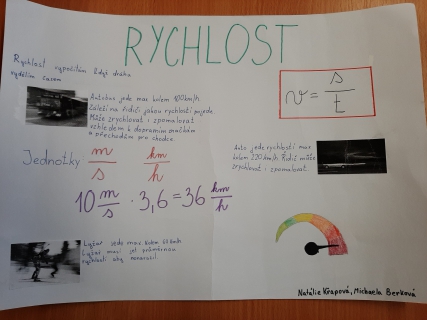 RYCHLOST
Rychlost vypočítám když dráhu
vydělím časem
v = s / t
Autobus jede max kolem 100km/h
Záleží na řidiči jakou rychlostí pojede.
Může zrychlovat i zpomalovat
vzhledem k dopravním značkám
a přechodům pro chodce.
Jednotky m/s km/h
10 m/s · 3,6 = 36 km/h
Auto jede rychlostí max
kolem 220km/h. Řidič může
zrychlovat i zpomalovat.
Lyžař jede max. kolem
Lyžař musí jet
rychlostí aby
Natálie Křapová, Michaela Berková